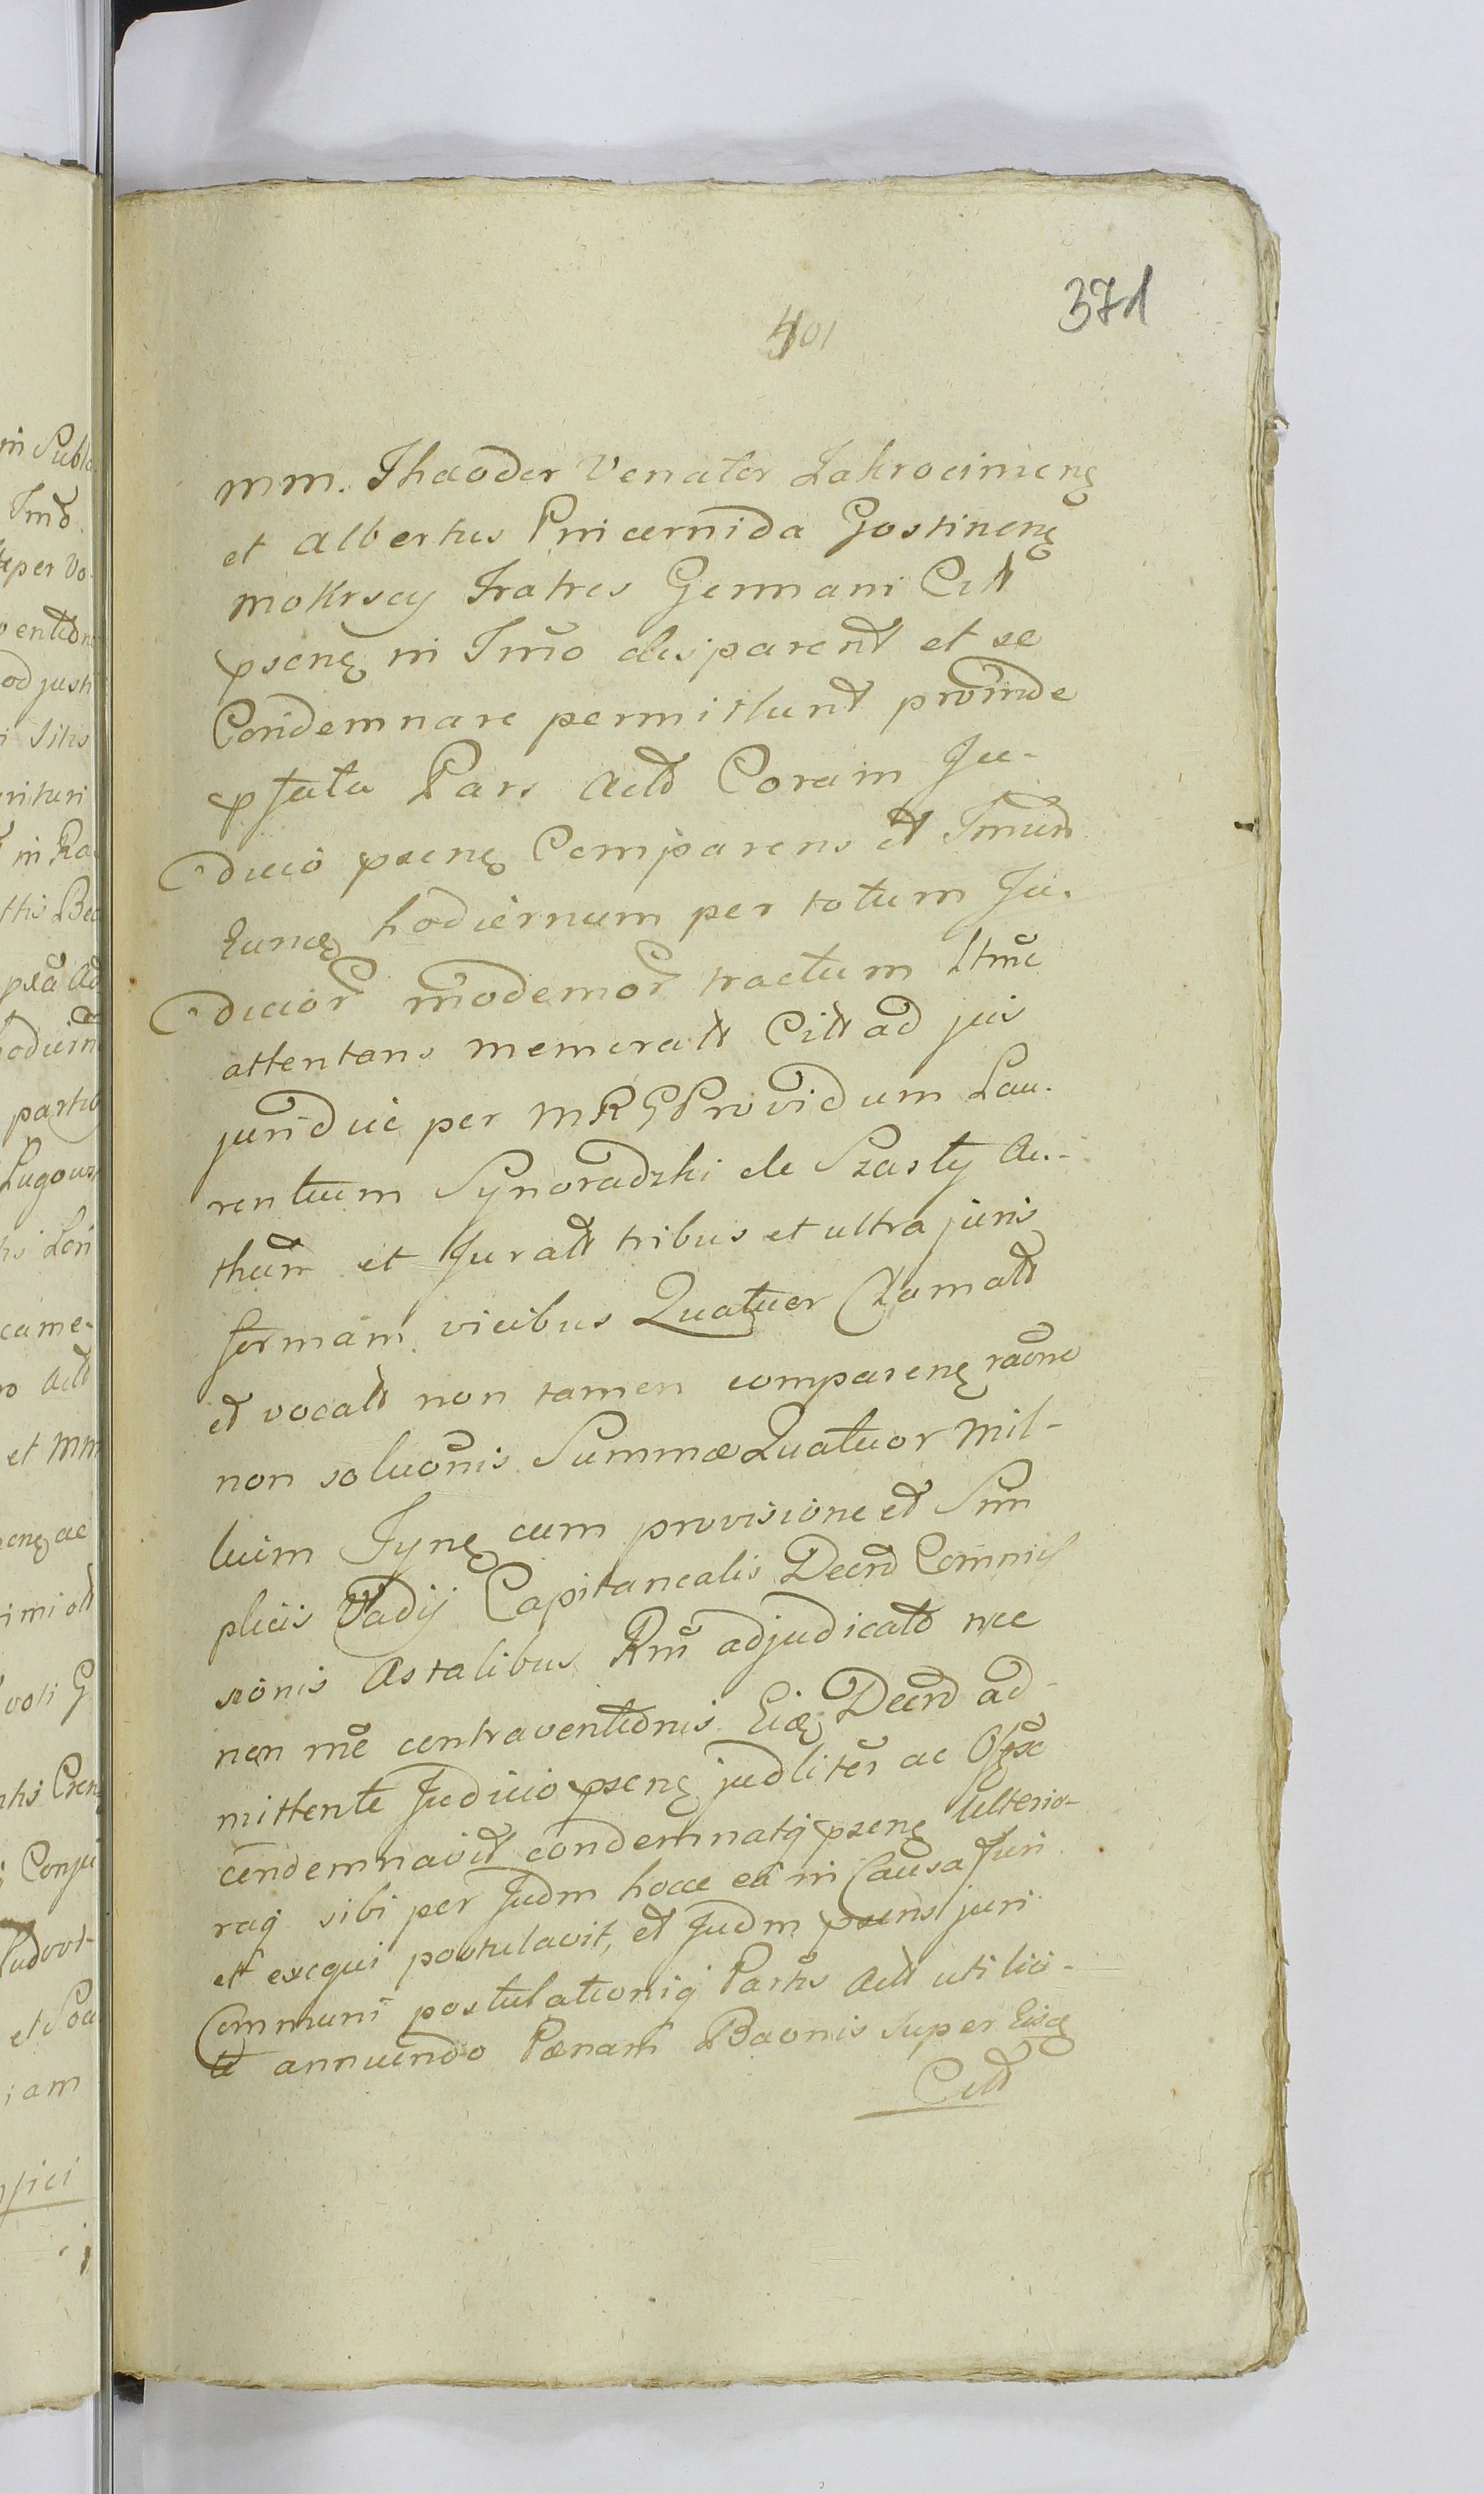 371
401
mm. Thaoder Venator Zakrocimienę
et Albertus Pincernida Gostinenę
Mokrscy Fratres Germani Citt
psenę in Tmo disparent et se
Condemnare permittunt proinde
pfata Pars Actt Coram Ju-
dicio psenę Comparens et Tmum
Eunę hodiernum per totum Ju-
dicior modernor tractum Ltme
attentans memoratt Citt ad jus
juridice per MRG Providum Lau-
rentium Synoradzki de Szasty Au-
thum et Juratt tribus et ultra juris
formam vicibus Quatuor Clamatt
et vocatt non tamen comparenę raone
non soluonis Summæ Quatuor Mil-
lium Fynę cum provisione et Sim
plicis Vadij Capitanealis Decrto Commis
sionis Astalibus Rm adjudicatt nec
non me contraventionis Eiæ Decrto ad-
mittente Judicio psenę judliter ac
condemnavit condemnatq psenę Ulterio-
raq sibi per Judm hocce eâ in Causa Juri
ett exequi postulavit, et Judm psens juri
Communi postulationiq Partis Actt utilio-
te annuendo Pænam Baonis super Eisd
Citt